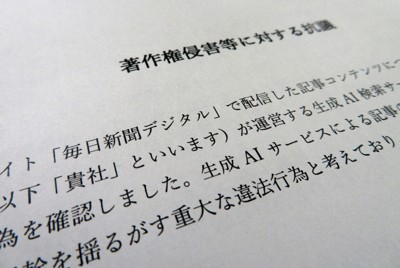 著作権侵害等に対する抗議
イト「毎日新聞デジタル」で配信した記事コンテンツにつ
以下「貴社」といいます）が運営する生成AI検索サー
為を確認しました。生成AIサービスによる記事の
幹を揺るがす重大な違法行為と考えており